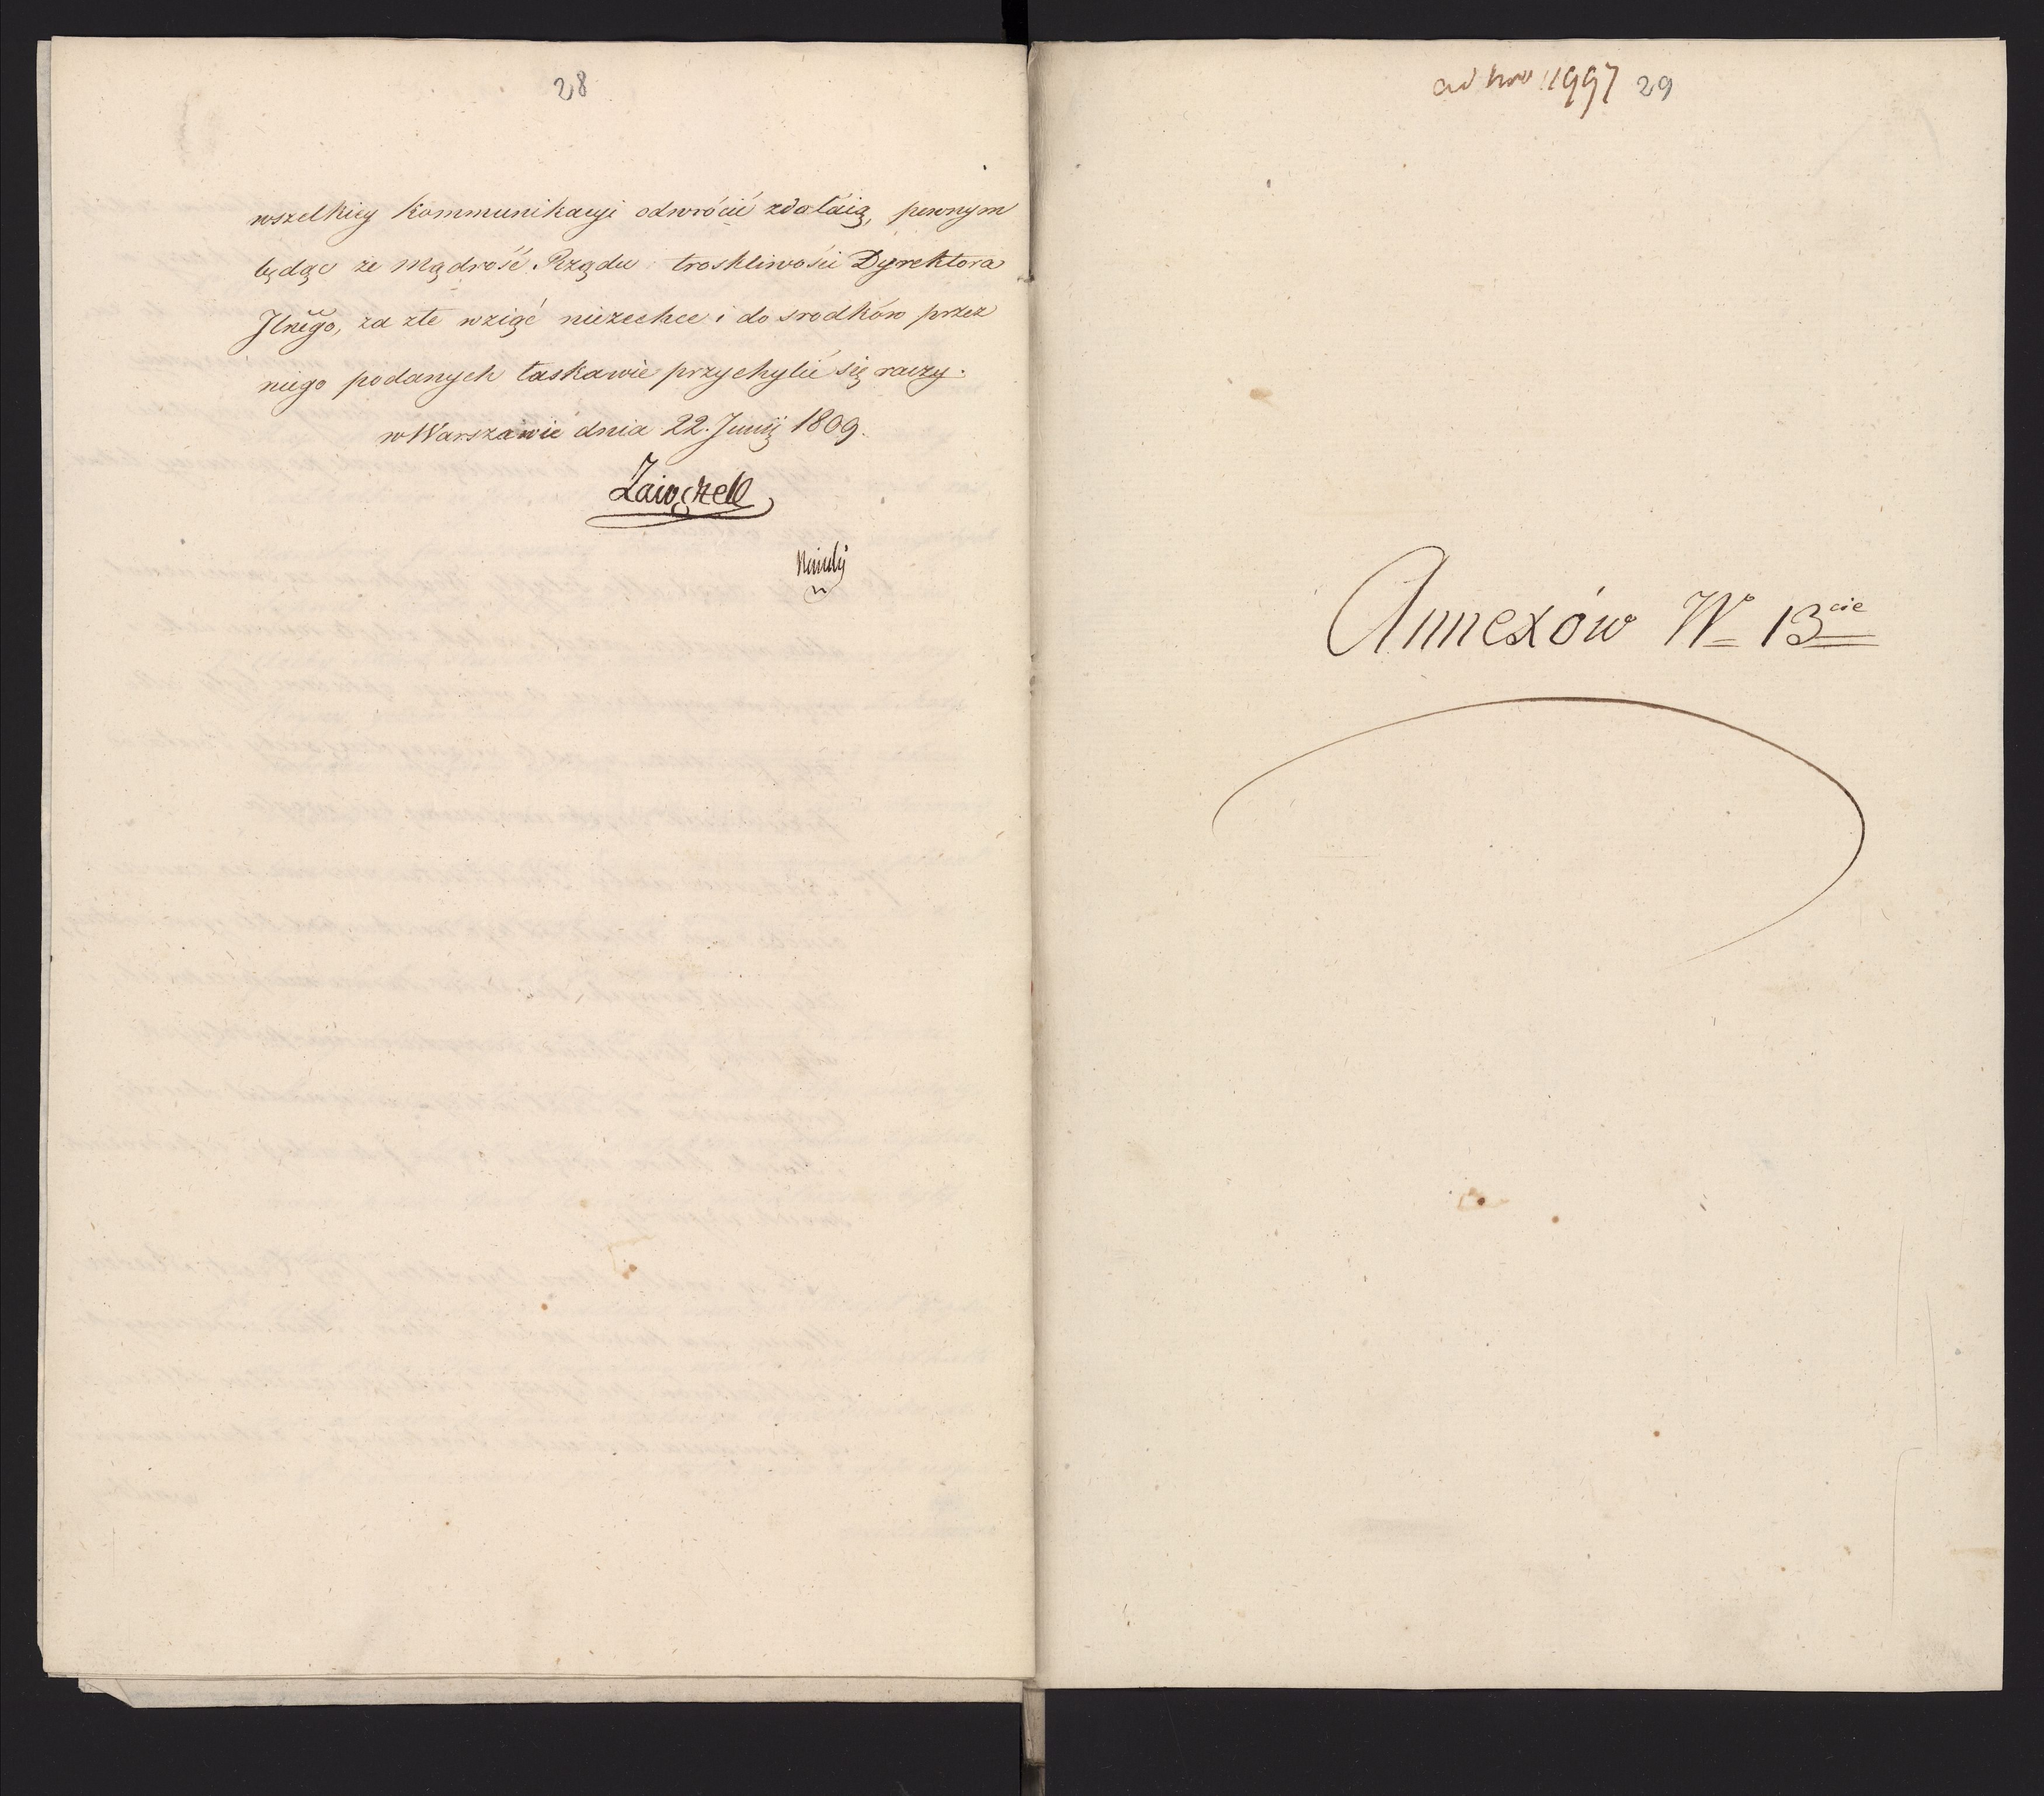 28
wszelkiey Kommunikacyi odwrócić zdołaią, pewnym
będąc że Mądrość Rządu troskliwości Dyrektora
Jlnego, za złe wziąć niezechce i do srodków przez
niego podanych łaskawie przychylić się raczy.
w Warszawie dnia 22. Junii 1809.
ad Nro 1997 29
Annexów No 13cie